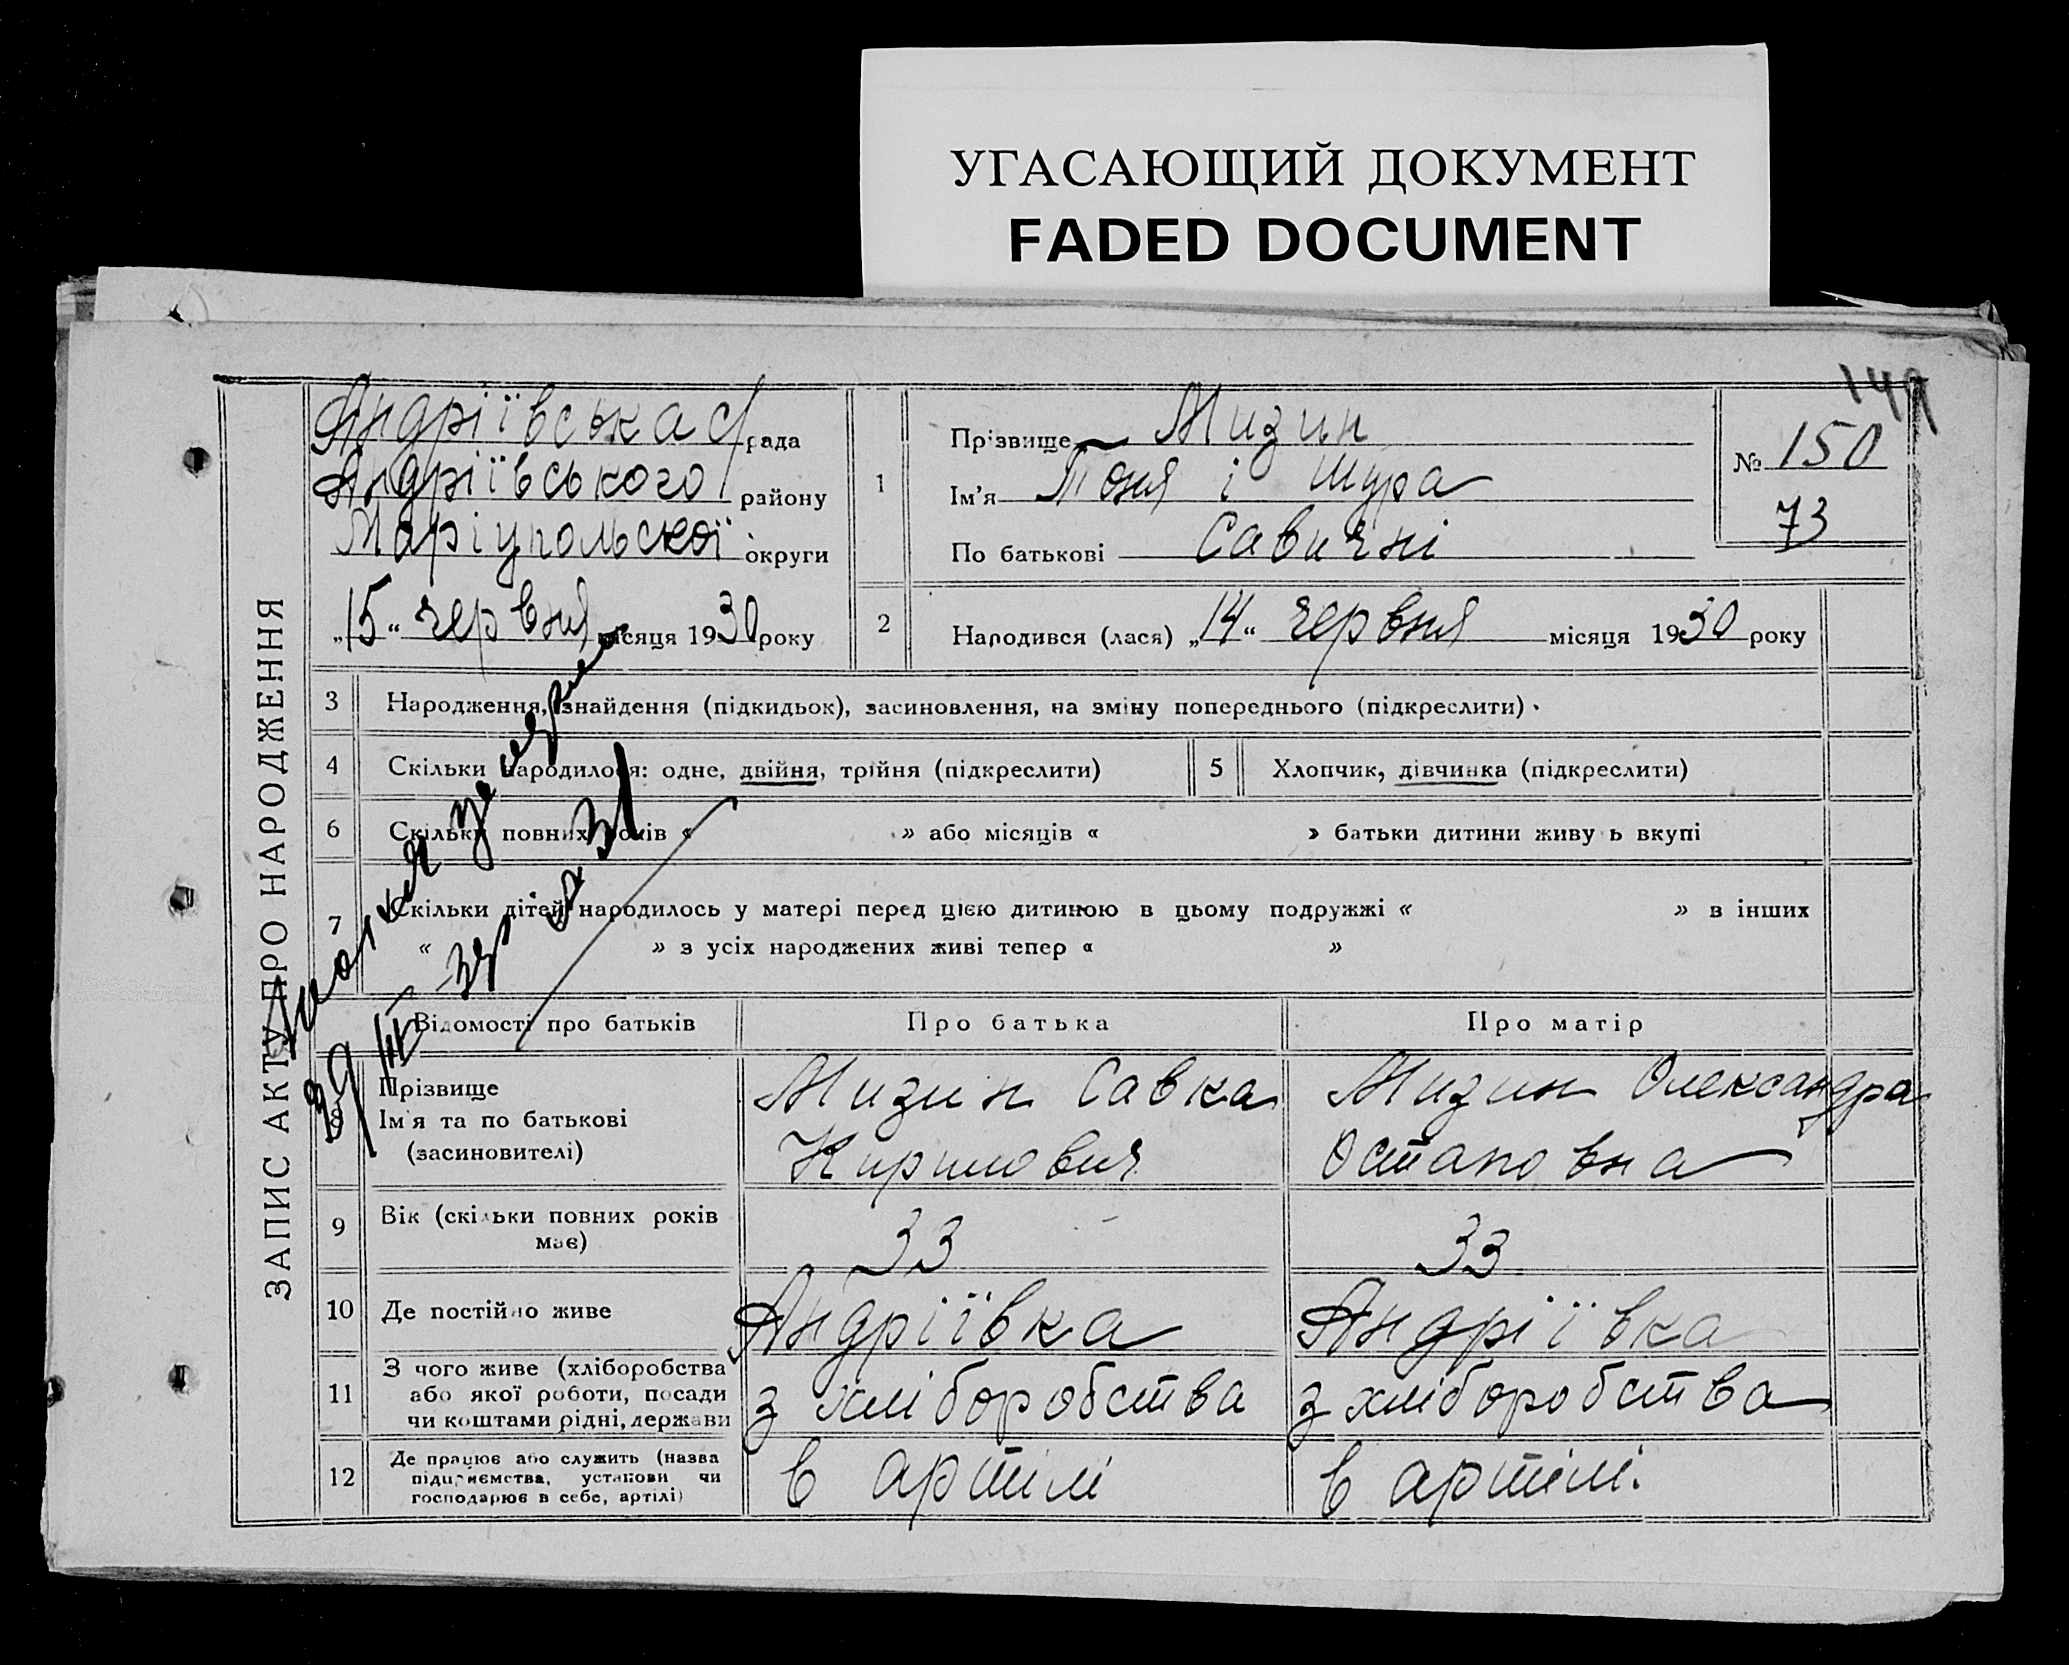 УГАСАЮЩИЙ ДОКУМЕНТ
FADED DOCUMENT
149
ЗАПИС АКТУ ПРО НАРОДЖЕННЯ
Андріївська с/рада
Андріївського району
Маріупольскої округи
„15“ червня місяця 1930 року
1 Прізвище Мизин
Ім'я Тоня і Шура
По батькові Савичні
№ 150
73
2 Народився (лася) „14“ червня місяця 1930 року
3 Народження, знайдення (підкидьок), засиновлення, на зміну попереднього (підкреслити)
4 Скільки народилося: одне, двійня, трійня (підкреслити) 5 Хлопчик, дівчинка (підкреслити)
6 Скільки повних років « » або місяців « » батьки дитини живуть вкупі
7 Скільки дітей народилось у матері перед цією дитиною в цьому подружжі « » в інших
« » з усіх народжених живі тепер « »
Відомості про батьків Про батька Про матір
8 Прізвище
Ім'я та по батькові
(засиновителі)
Мизин Савка
Кирилович
Мизин Олександра
Остаповна
9 Вік (скільки повних років
має)
33 33
10 Де постійно живе Андріївка Андріївка
11 З чого живе (хліборобства
або якої роботи, посади
чи коштами рідні, держави
з хліборобства з хліборобства
12 Де працює або служить (назва
підприємства, установи чи
господарює в себе, артілі)
в артілі в артілі.